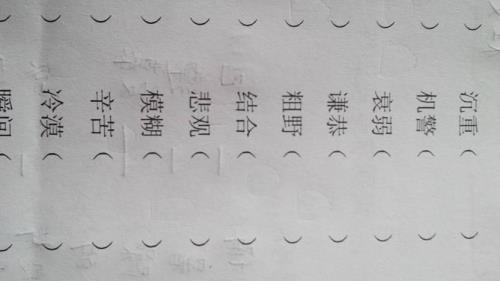 ) 沉重 ( )
) 机警 ( )
) 衰弱 ( )
) 谦恭 ( )
) 粗野 ( )
) 结合 ( )
) 悲观 ( )
) 模糊 ( )
) 辛苦 ( )
) 冷漠 ( )
) 瞬间 ( )